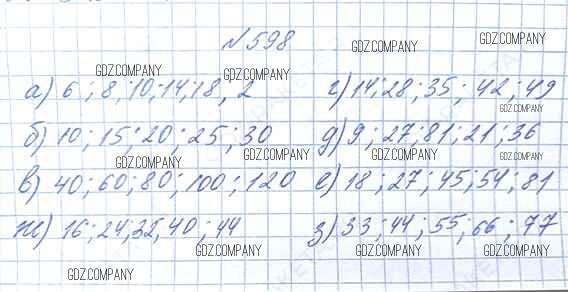 №598
GDZ.COMPANY GDZ.COMPANY
GDZ.COMPANY GDZ.COMPANY
а) 6; 8; 10; 14; 18, 2 г) 14; 28; 35; 42; 49
GDZ.COMPANY
б) 10; 15; 20; 25; 30 д) 9; 27; 81; 21; 36
GDZ.COMPANY GDZ.COMPANY GDZ.COMPANY GDZ.COMPANY
в) 40; 60; 80; 100; 120 е) 18; 27; 45; 54; 81
ж) 16; 24; 32, 40; 44 з) 33; 44; 55; 66; 77
GDZ.COMPANY GDZ.COMPANY GDZ.COMPANY
GDZ.COMPANY